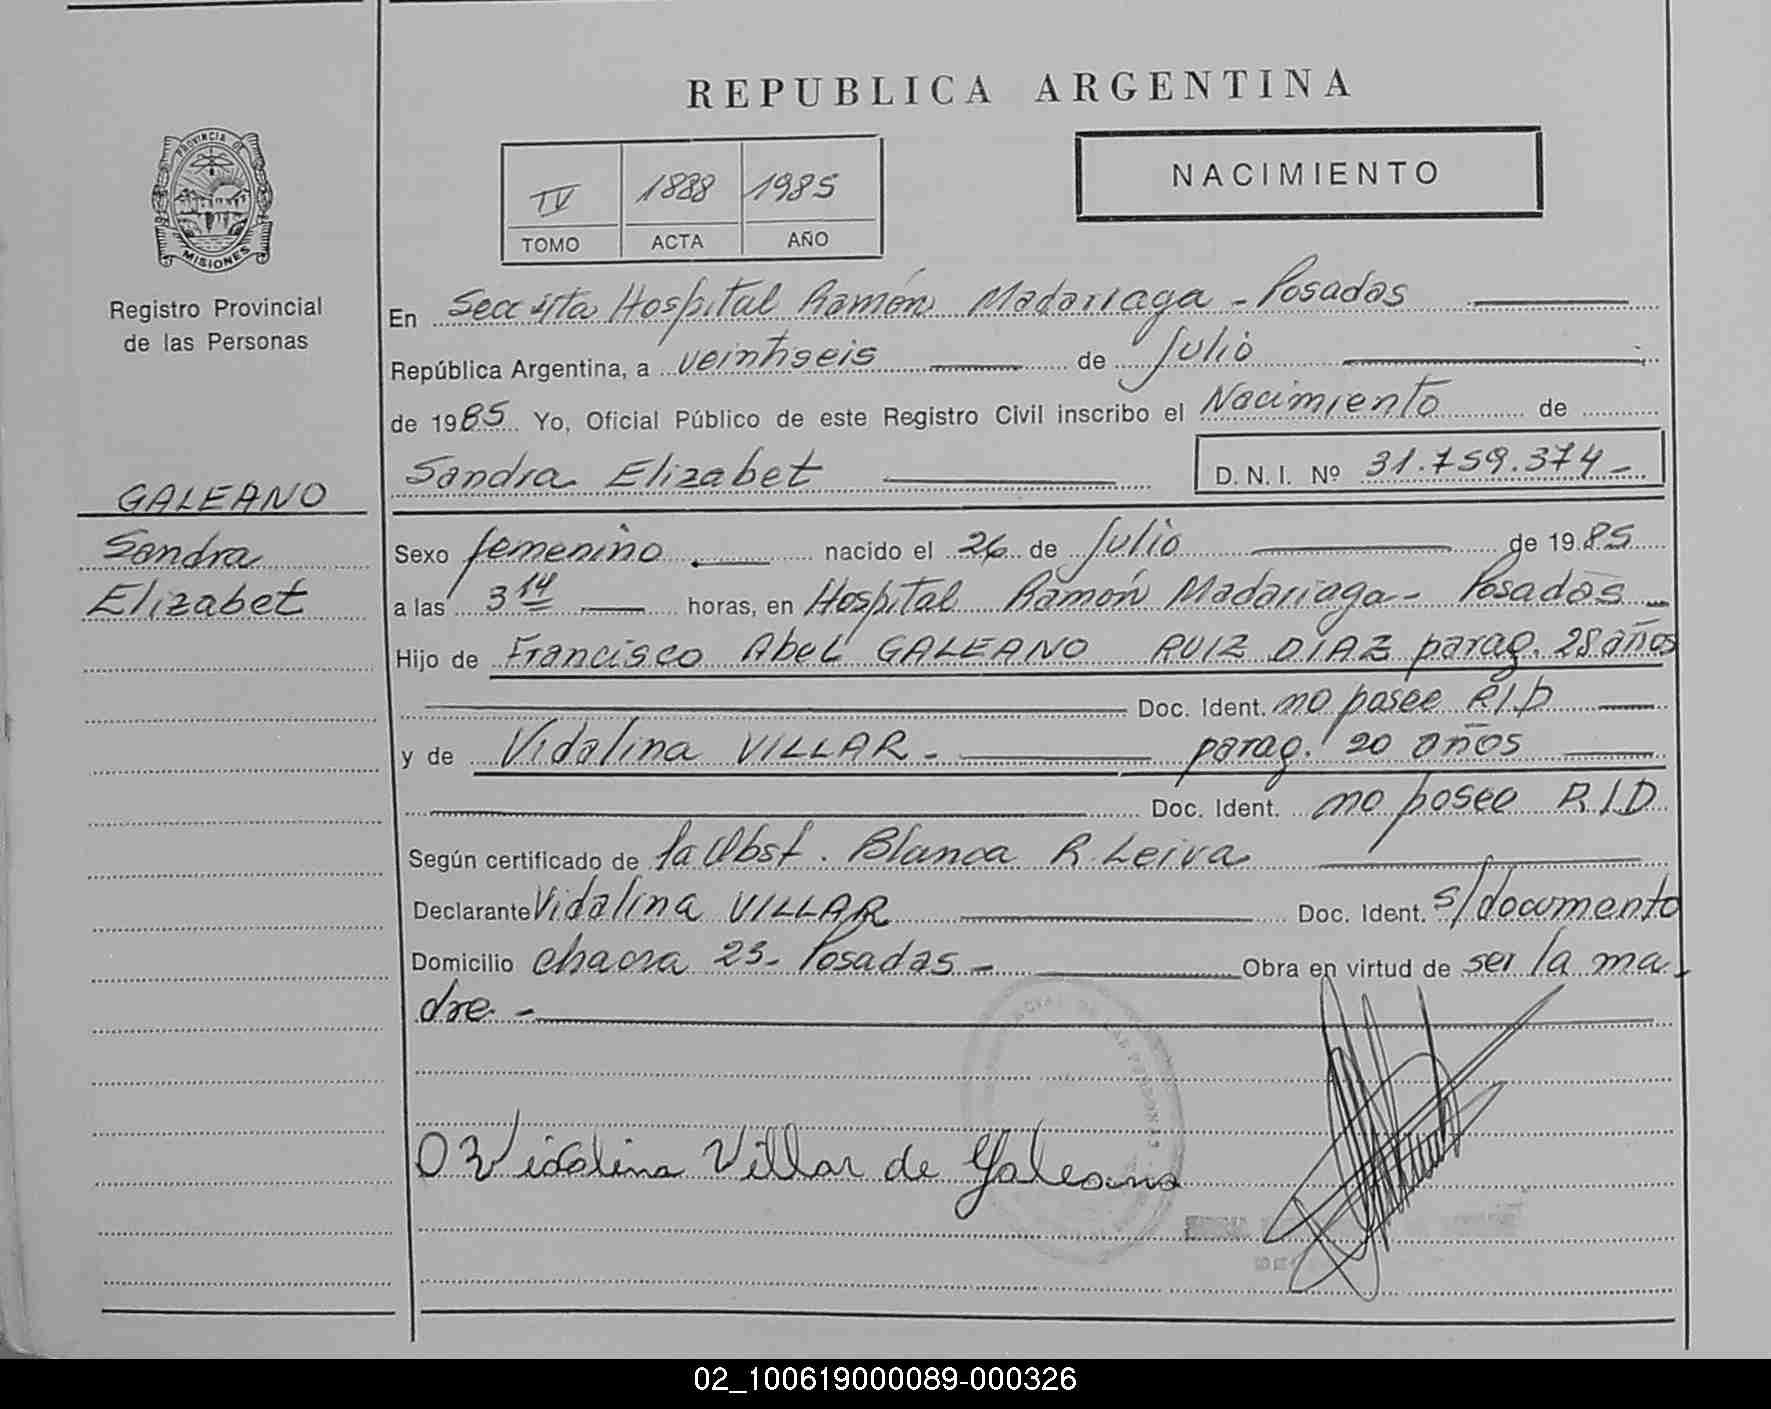 REPUBLICA ARGENTINA
PROVINCIA DE
MISIONES
Registro Provincial
de las Personas
IV 1888 1985
TOMO ACTA AÑO
NACIMIENTO
En Secc 4ta Hospital Ramón Madariaga - Posadas
República Argentina, a veintiseis de Julio
de 1985 Yo, Oficial Público de este Registro Civil inscribo el Nacimiento de
Sandra Elizabet D.N.I. Nº 31.759.374-
GALEANO
Sandra
Elizabet
Sexo femenino nacido el 26 de Julio de 1985
a las 3 14 horas, en Hospital Ramón Madariaga - Posadas
Hijo de Francisco Abel GALEANO RUIZ DIAZ parag. 28 años
Doc. Ident. no posee R.I.D
y de Vidalina VILLAR - parag. 20 años
Doc. Ident. no posee R.I.D
Según certificado de la Obst. Blanca R. Leiva
Declarante Vidalina VILLAR Doc. Ident. s/documento
Domicilio chacra 23- Posadas - Obra en virtud de ser la ma
dre -
Vidalina Villar de Galeano
02_100619000089-000326